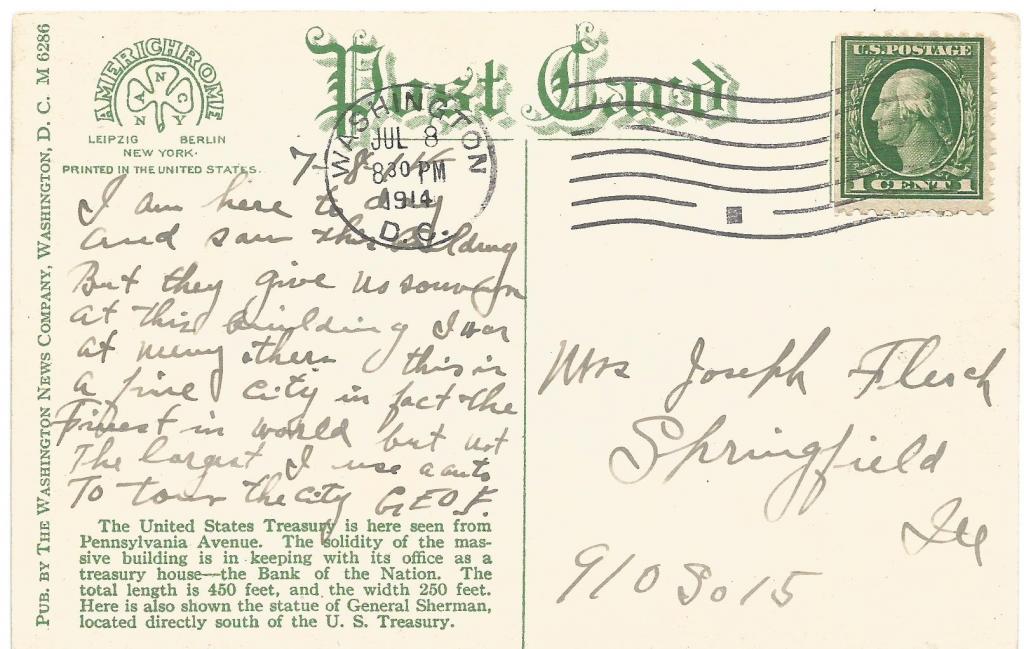 PUB. BY THE WASHINGTON NEWS COMPANY, WASHINGTON, D. C. M 6286
AMERICHROME
N
A C
N Y
LEIPZIG BERLIN
NEW YORK.
PRINTED IN THE UNITED STATES.
Post Card
WASHINGTON
JUL 8
830 PM
1914
D.C.
U.S. POSTAGE
1 CENT 1
7-8-
I am here to day
and saw this Building
But they give us souvern
at this building I was
at meny others this is
a fine City in fact the
Finest in world but not
The largest I use a auto
To tour the City GEO F.
The United States Treasury is here seen from
Pennsylvania Avenue. The solidity of the mas-
sive building is in keeping with its office as a
treasury house—the Bank of the Nation. The
total length is 450 feet, and the width 250 feet.
Here is also shown the statue of General Sherman,
located directly south of the U. S. Treasury.
Mrs Joseph Flesch
Springfield
Ill
910 So 15